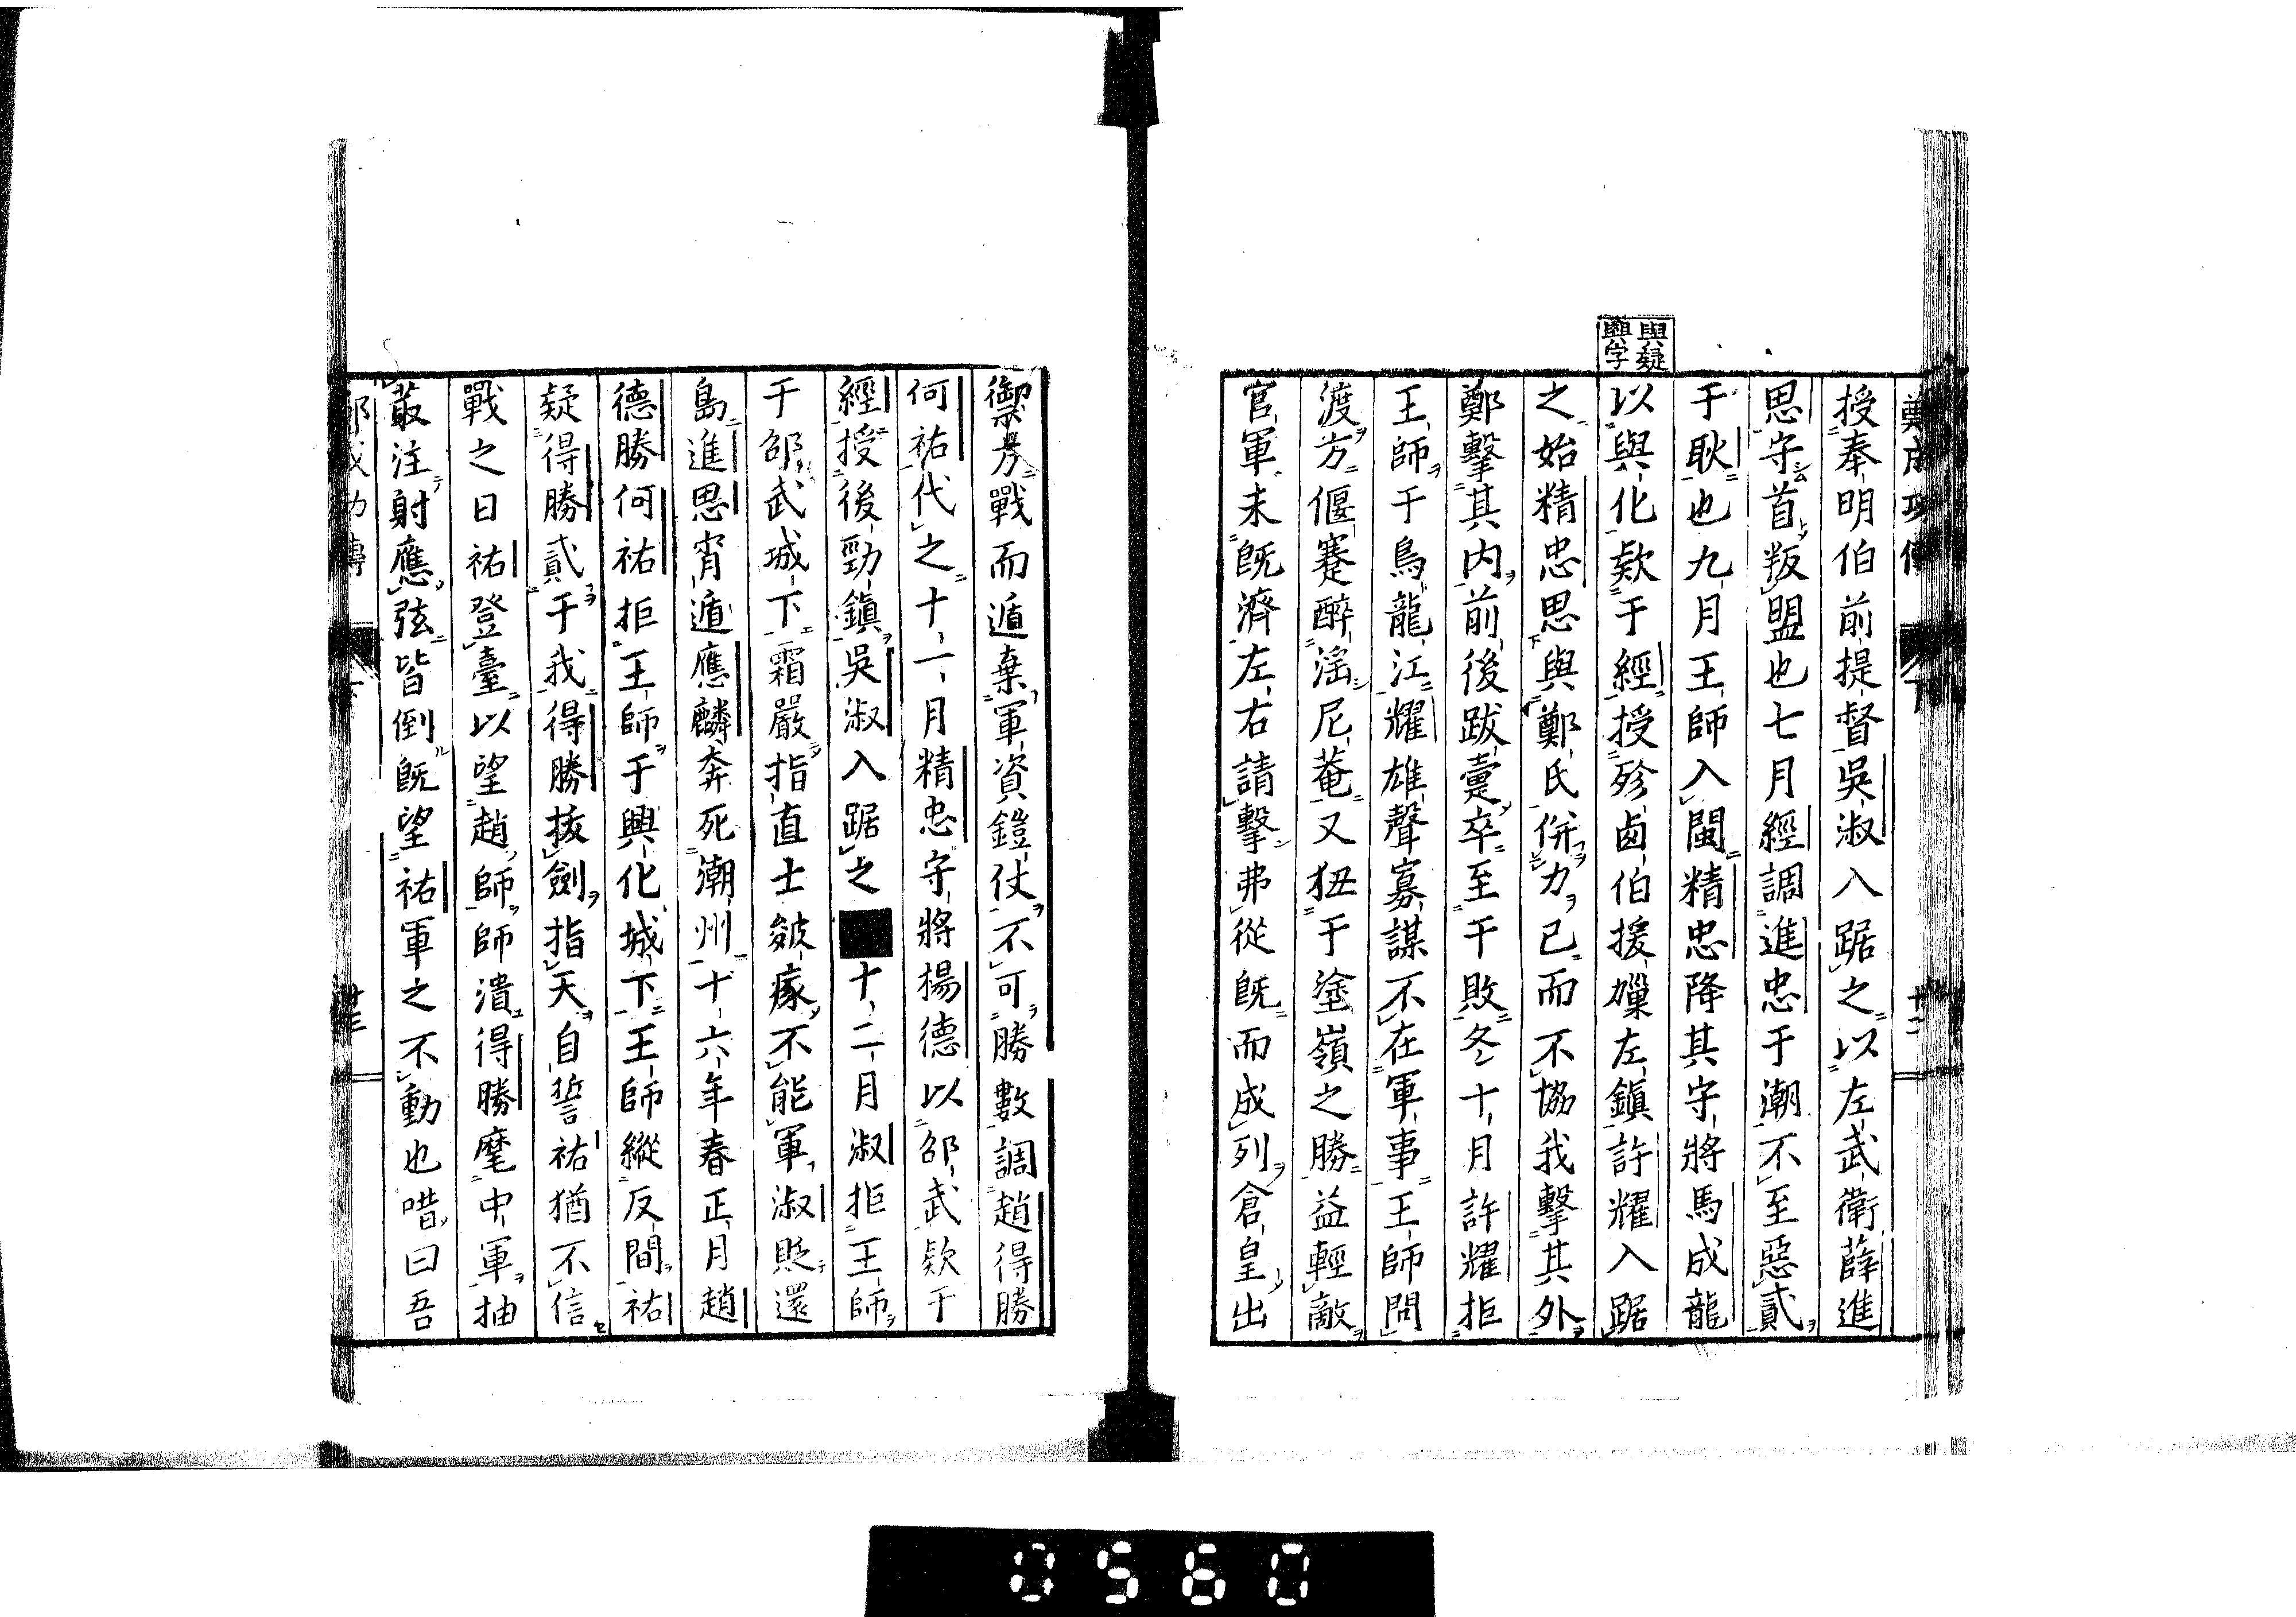 鄭成功傳
下
十二
與疑
興字
授奉明伯前提督吳淑入踞之以左武衛薛進
思守首叛盟也七月經調進忠于潮不至惡貳
于耿也九月王師入閩精忠降其守將馬成龍
以與化欵于經授殄鹵伯援勦左鎮許耀入踞
之始精忠思與鄭氏併力已而不協我擊其外
鄭擊其内前後跋疐卒至于敗冬十月許耀拒
王師于烏龍江耀雄聲寡謀不在軍事王師問
渡方偃蹇醉滛尼菴又狃于塗嶺之勝益輕敵
官軍未既濟左右請擊弗從既而成列倉皇出
禦旁戰而遁棄軍資鎧仗不可勝數調趙得勝
何祐代之十一月精忠守將楊德以邵武欵于
經授後勁鎮吳淑入踞之十二月淑拒王師
于邵武城下霜嚴指直士皴瘃不能軍淑貶還
島進思宵遁應麟奔死潮州十六年春正月趙
德勝何祐拒王師于興化城下王師縱反間祐
疑得勝貳于我得勝抜劍指天自誓祐猶不信
戰之日祐登臺以望趙師師潰得勝麾中軍抽
菆注射應弦皆倒既望祐軍之不動也唶曰吾
鄭成功傳
下
十三
0560